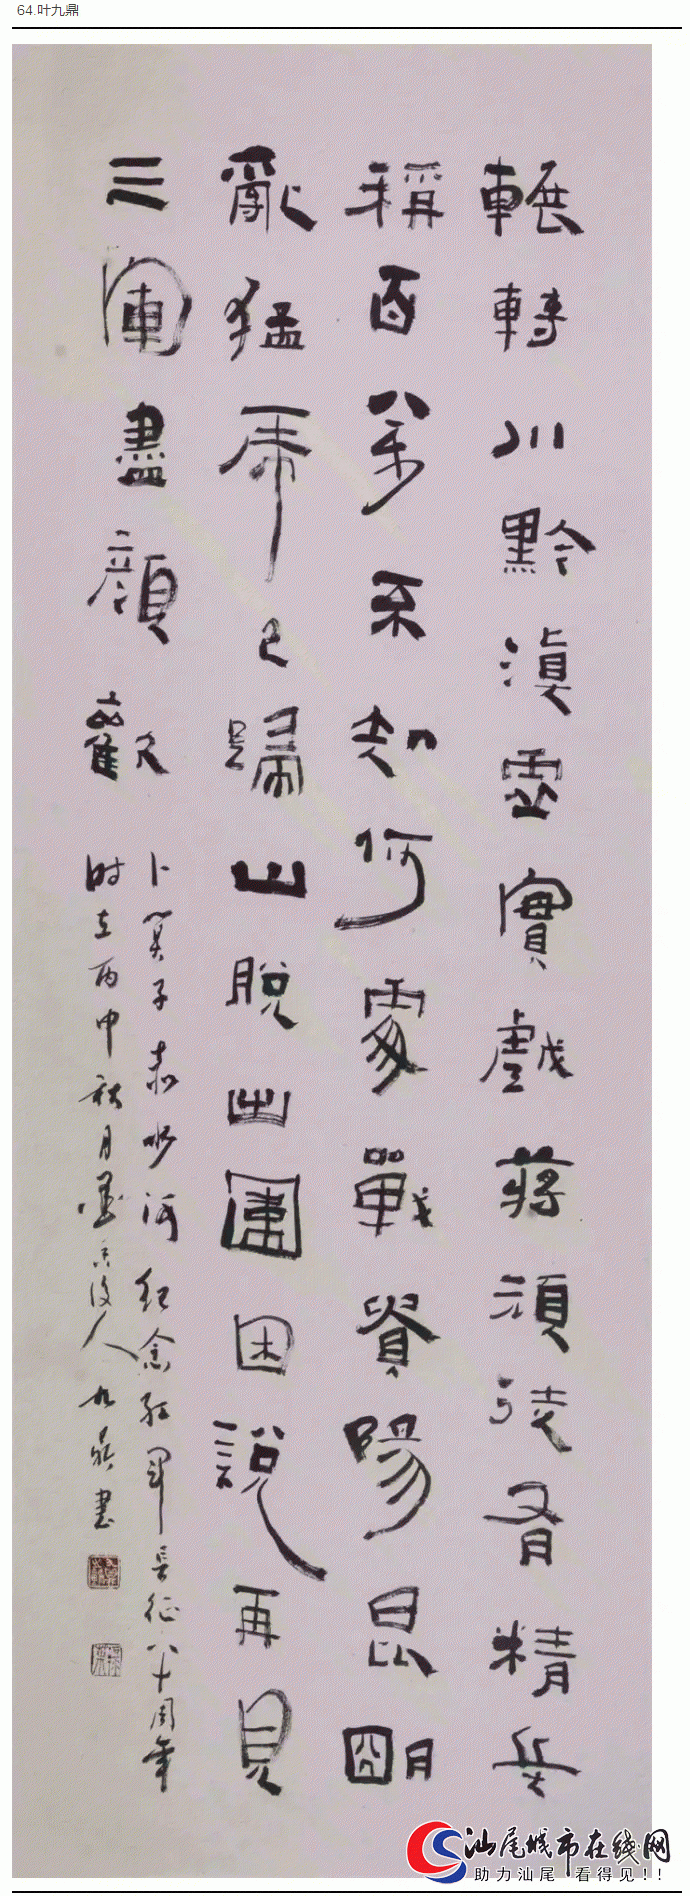 64.叶九鼎
輾轉川黔滇雲實戲蔣頑徒有精兵
稱百萬不知何處戰貴陽昆明
亂猛虎已歸山脫出圍困說再見
三軍盡顏歡
卜算子赤水河纪念红军長征八十周年
时在丙申秋月後人九鼎書
汕尾城市在线网
助力汕尾 看得见!!